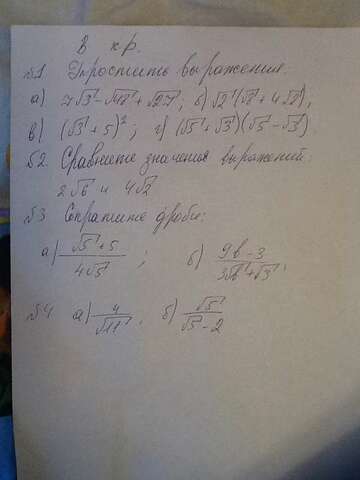 В кр.
№1 Упростить выражения:
а) 7√3 - √48 + √27; б) √2(√8 + 4√2),
в) (√3 + 5)²; г) (√5 + √3)(√5 - √3).
№2. Сравните значения выражений:
2√6 и 4√2
№3 Сократите дроби:
а) (√5 + 5)/(4√5); б) (9b - 3)/(3√b + √3),
№4 а) 4/√11. б) √5/(√5 - 2)